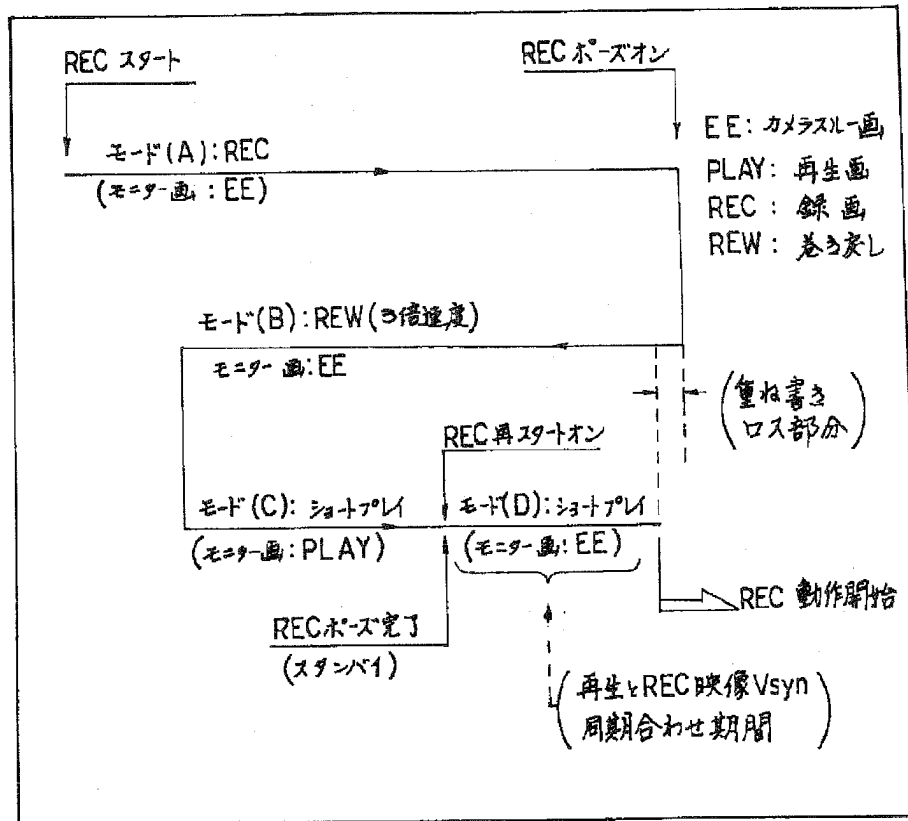 REC スタート
REC ポーズオン
EE: カメラスルー画
PLAY: 再生画
REC: 録画
REW: 巻き戻し
モード(A):REC
(モニター画:EE)
モード(B):REW(3倍速度)
モニター画:EE
(重ね書き
ロス部分)
REC再スタートオン
モード(C): ショートプレイ
(モニター画:PLAY)
モード(D):ショートプレイ
(モニター画:EE)
REC 動作開始
RECポーズ完了
(スタンバイ)
(再生とREC映像Vsyn
同期合わせ期間)